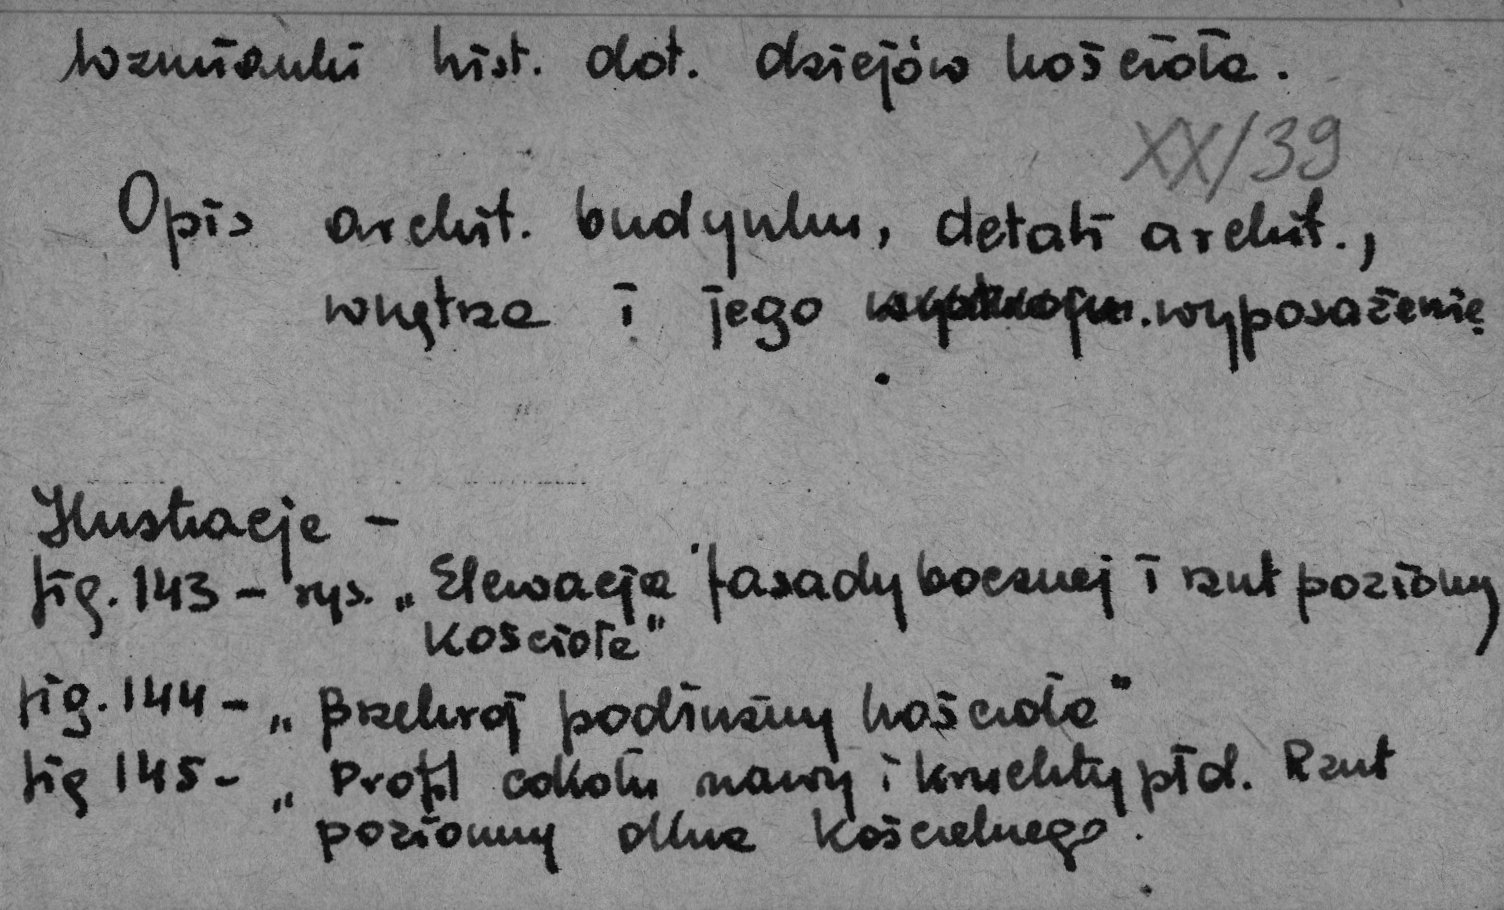 Wzmianki hist. dot. dziejów kościoła.
XX/39
Opis archit. budynku, detali archit.,
wnętrza i jego wyposażenie
Ilustracje -
fig. 143 - rys. „Elewacja fasady bocznej i rzut poziomy
Kościoła"
fig. 144 - „Przekrój podłużny kościoła"
fig 145 - „Profil cokołu nawy i kruchty płd. Rzut
poziomy okna kościelnego".